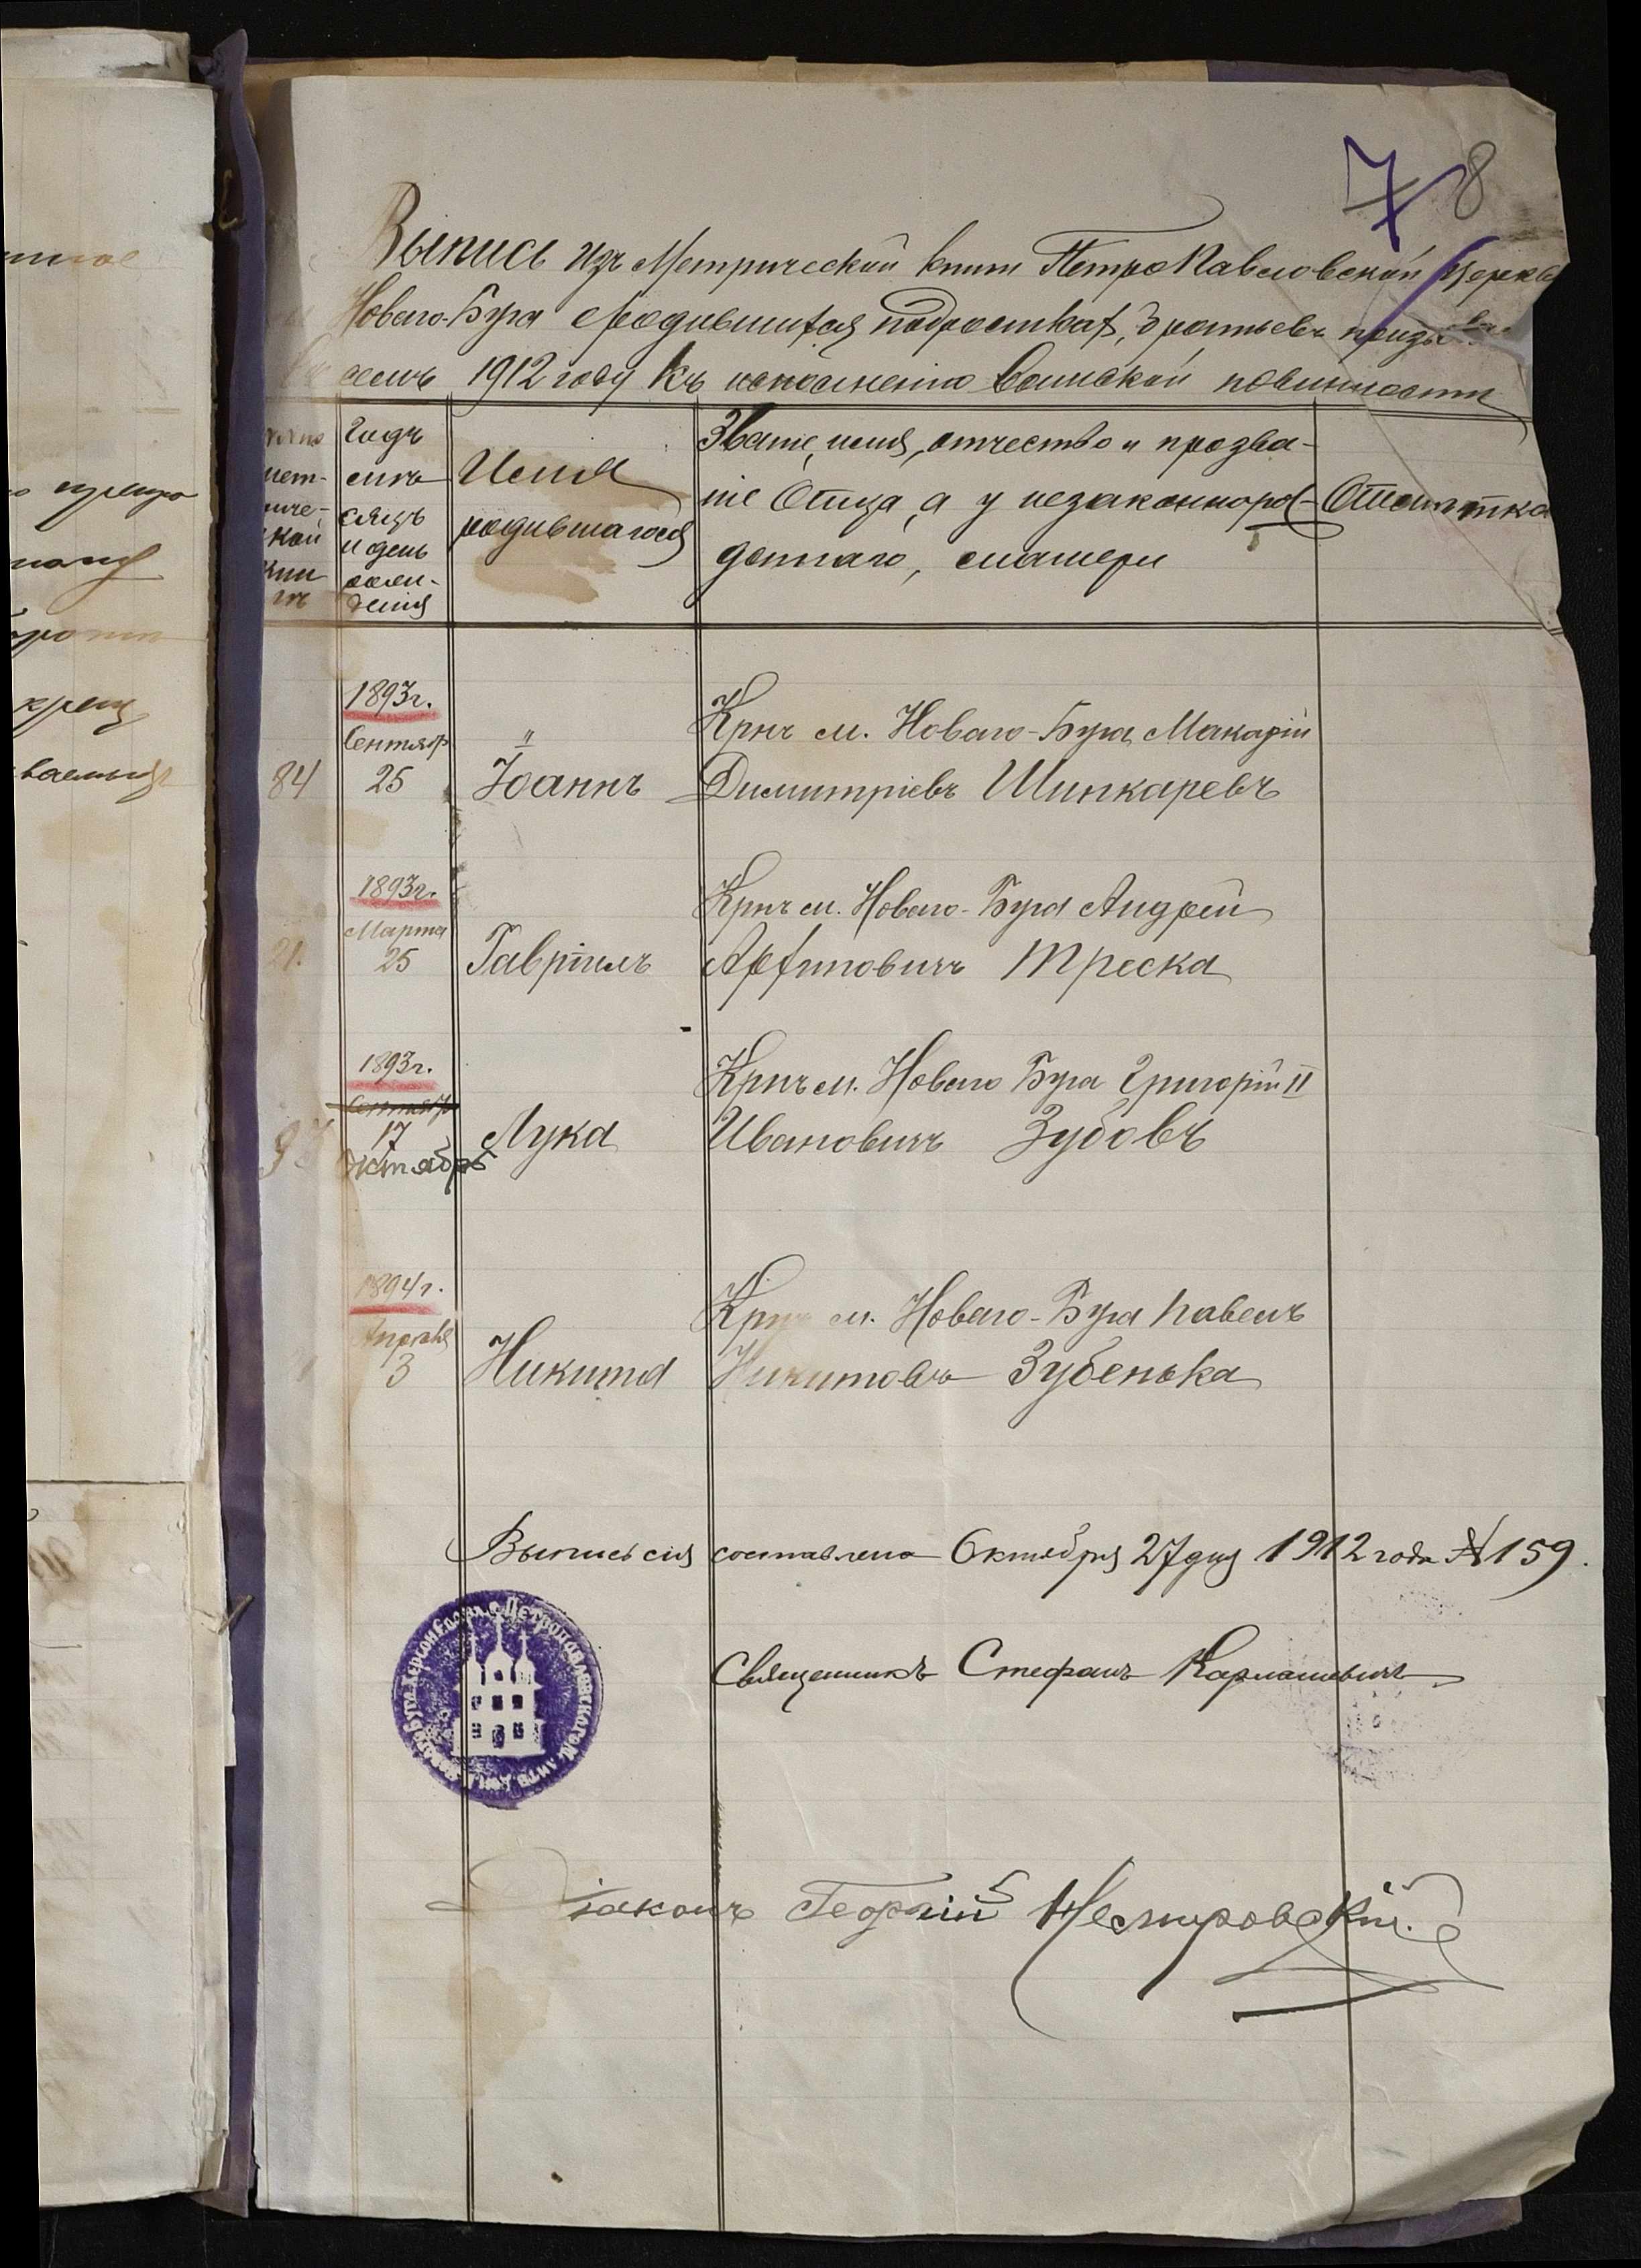 7 8
Выпись изъ Метрической книги Петро Павловской Церкв
Новаго-Буга о родившихся подросткахъ, братьевъ призыв
семъ 1912 году къ исполненію воинской повинности
мет-
риче-
ской
кни
гѣ
Годъ
мѣ-
сяцъ
и день
рож-
денія
Имя
родившагося
Званіе, имя, отчество и прозва-
ніе Отца, а у незаконнорож-
деннаго, матери
Отмѣтка
1893г.
Сентяр
25
84
"
Іоаннъ
Крнъ м. Новаго-Буга Макарій
Димитріевъ Шинкаревъ
1893г.
Марта
25
21.
Гавріилъ
Крнъ м. Новаго-Буга Андрей
Архиповичъ Треска
1893г.
Сентябр
17
Октябрѣ
Лука
Крнъ м. Новаго Буга Григорій II
Ивановичъ Зубовъ
1894г.
Апрѣля
3
Никита
Крнъ м. Новаго-Буга Павелъ
Никитовъ Зубенька
Выпись сія составлена Октября 27 дня 1912 года № 159.
Священникъ Стефанъ Карпашевичъ
Діаконъ Георгій Немировскій.